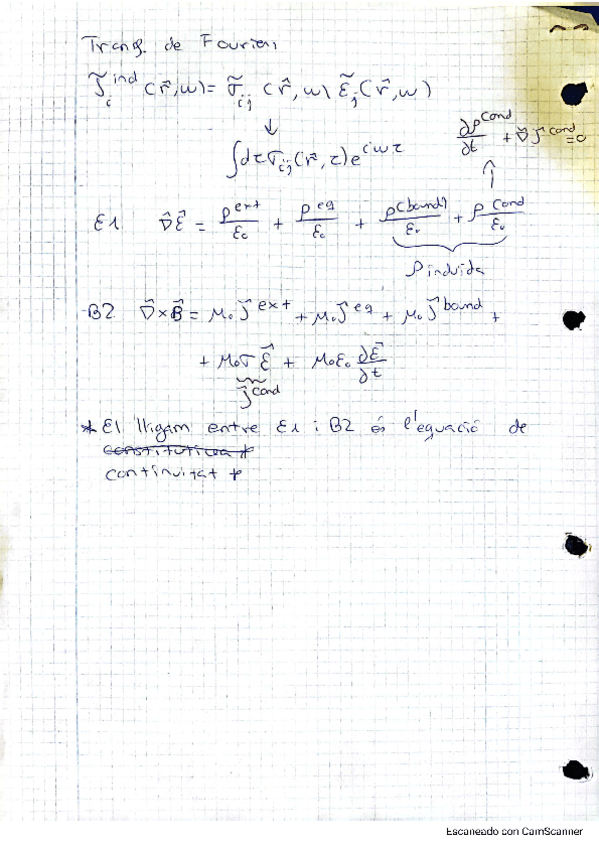 Transf. de Fourier,
J̃ᵢ^ind (r⃗,ω) = σ̃ᵢⱼ (r⃗,ω) ε̃ⱼ(r⃗,ω)
↓
∫dτ σᵢⱼ(r⃗,τ) e^{iωτ}
∂ρ^cond/∂t + ∇⃗ J⃗^cond = 0
↑
E1 ∇⃗ε⃗ = ρ^ext/ε₀ + ρ^eq/ε₀ + ρ^(bound)/ε₀ + ρ^cond/ε₀
ρ induida
B2 ∇⃗×B⃗ = μ₀ J⃗^ext + μ₀ J⃗^eq + μ₀ J⃗^bound +
+ μ₀σ ε⃗ + μ₀ε₀ ∂ε⃗/∂t
J⃗^cond
* El lligam entre E1 i B2 és l'equació de
constitutiva *
continuitat *
Escaneado con CamScanner